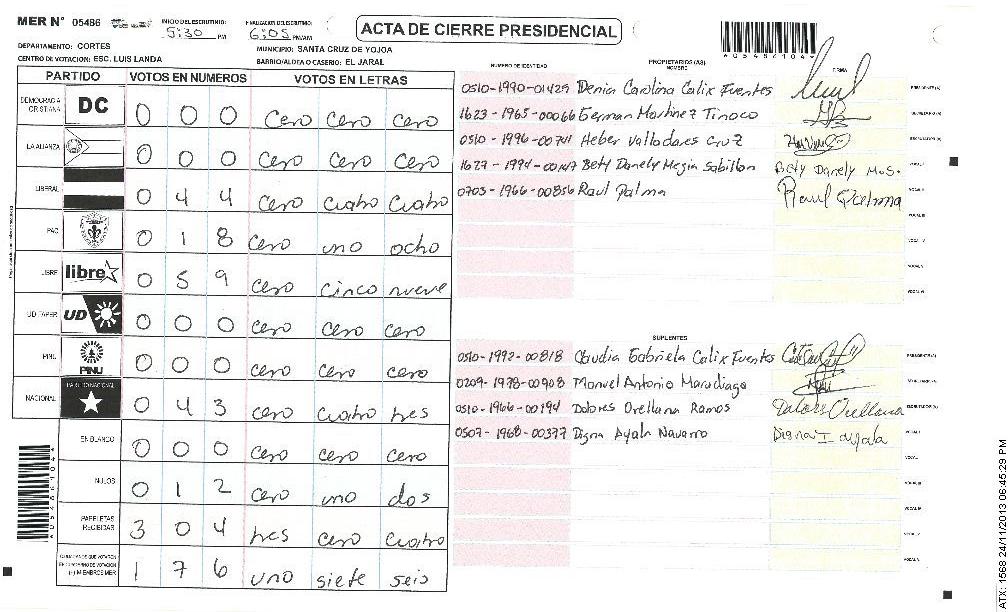 MER N° 05486
INICIO DEL ESCRUTINIO: 5:30 PM
FINALIZACION DEL ESCRUTINIO: 6:05 PM/AM
ACTA DE CIERRE PRESIDENCIAL
DEPARTAMENTO: CORTES
MUNICIPIO: SANTA CRUZ DE YOJOA
CENTRO DE VOTACION: ESC. LUIS LANDA
BARRIO/ALDEA O CASERIO: EL JARAL
PARTIDO VOTOS EN NUMEROS VOTOS EN LETRAS
DEMOCRACIA CRISTIANA DC 0 0 0 Cero Cero Cero
LA ALIANZA 0 0 0 Cero Cero Cero
LIBERAL 0 4 4 Cero Cuatro Cuatro
PAC 0 1 8 Cero uno ocho
LIBRE libre 0 5 9 Cero Cinco nueve
UD FAPER UD 0 0 0 Cero Cero Cero
PINU PINU 0 0 0 Cero Cero Cero
NACIONAL PARTIDO NACIONAL 0 4 3 Cero Cuatro tres
EN BLANCO 0 0 0 Cero Cero Cero
NULOS 0 1 2 Cero uno dos
PAPELETAS RECIBIDAS 3 0 4 tres Cero Cuatro
1 7 6 uno siete seis
NUMERO DE IDENTIDAD PROPIETARIOS (AS) NOMBRE FIRMA
0510-1990-01429 Denia Carolina Calix Fuentes PRESIDENTE (A)
1623-1965-00066 German Martinez Tinoco SECRETARIO (A)
0510-1996-00741 Heber Valladares Cruz ESCRUTADOR (A)
1627-1994-00147 Bety Danely Mejia Sabillon Bety Danely M.S. VOCAL I
0703-1966-00856 Raul Palma Raul Palma VOCAL II
VOCAL III
VOCAL IV
VOCAL V
VOCAL VI
SUPLENTES
0510-1992-00818 Claudia Gabriela Calix Fuentes PRESIDENTE (A)
0209-1978-00908 Manuel Antonio Marudiaga SECRETARIO (A)
0510-1966-00194 Dolores Orellana Ramos Dolores Orellana ESCRUTADOR (A)
0507-1968-00377 Digna Ayala Navarro VOCAL I
VOCAL II
VOCAL III
VOCAL IV
VOCAL V
VOCAL VI
ATX: 1568 24/11/2013 06:45:29 PM